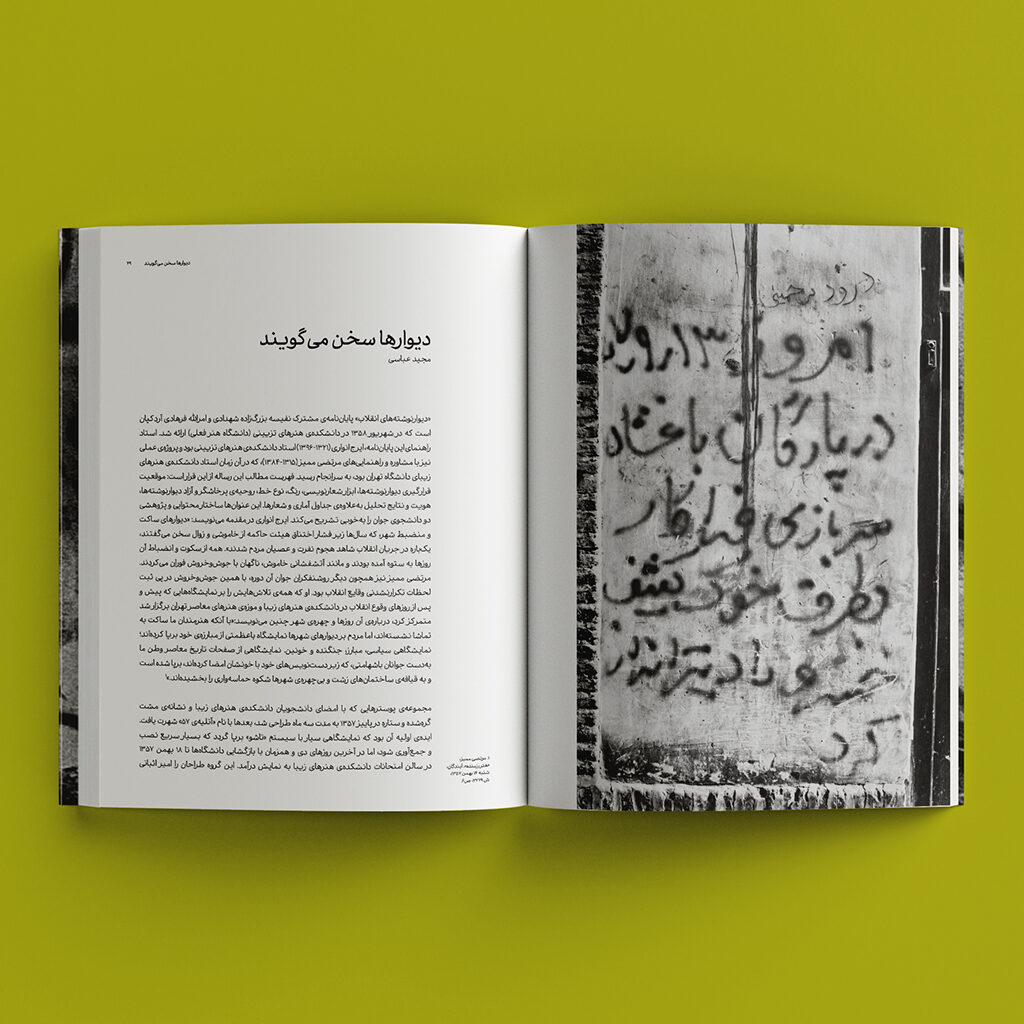 درود بر خمینی
امروز ۱۳
در پادگان باغشاه
سربازی فداکار
بطرف خود
شد و تیراندازی
کرد
دیوارها سخن می‌گویند
۲۹
دیوارها سخن می‌گویند
مجید عباسی
«دیوارنوشته‌های انقلاب» پایان‌نامه‌ی مشترک نفیسه بزرگ‌زاده شهدادی و امرالله فرهادی آردکپان
است که در شهریور ۱۳۵۸ در دانشکده‌ی هنرهای تزیینی (دانشگاه هنر فعلی) ارائه شد. استاد
راهنمای این پایان‌نامه، ایرج انواری (۱۳۲۱-۱۳۹۶) استاد دانشکده‌ی هنرهای تزیینی بود و پروژه‌ی عملی
نیز با مشاوره و راهنمایی‌های مرتضی ممیز (۱۳۱۵-۱۳۸۴)، که در آن زمان استاد دانشکده‌ی هنرهای
زیبای دانشگاه تهران بود، به سرانجام رسید. فهرست مطالب این رساله از این قرار است: موقعیت
قرارگیری دیوارنوشته‌ها، ابزار شعارنویسی، رنگ، نوع خط، روحیه‌ی پرخاشگر و آزاد دیوارنوشته‌ها،
هویت و نتایج تحلیل به‌علاوه‌ی جداول آماری و شعارها. این عنوان‌ها ساختار محتوایی و پژوهشی
دو دانشجوی جوان را به‌خوبی تشریح می‌کند. ایرج انواری در مقدمه می‌نویسد: «دیوارهای ساکت
و منضبط شهر، که سال‌ها زیر فشار اختناق هیئت حاکمه از خاموشی و زوال سخن می‌گفتند،
یکباره در جریان انقلاب شاهد هجوم نفرت و عصیان مردم شدند». همه از سکوت و انضباط آن
روزها به ستوه آمده بودند و مانند آتشفشانی خاموش، ناگهان با جوش‌وخروش فوران می‌کردند.
مرتضی ممیز نیز همچون دیگر روشنفکران جوان آن دوره، با همین جوش‌وخروش در پی ثبت
لحظات تکرارنشدنی وقایع انقلاب بود. او که همه‌ی تلاش‌هایش را بر نمایشگاه‌هایی که پیش و
پس از روزهای وقوع انقلاب در دانشکده‌ی هنرهای زیبا و موزه‌ی هنرهای معاصر تهران برگزار شد
متمرکز کرد، درباره‌ی آن روزها و چهره‌ی شهر چنین می‌نویسد: «با آنکه هنرمندان ما ساکت به
تماشا نشسته‌اند، اما مردم بر دیوارهای شهرها نمایشگاه باعظمتی از مبارزه‌ی خود برپا کرده‌اند؛
نمایشگاهی سیاسی، مبارز، جنگنده و خونین. نمایشگاهی از صفحات تاریخ معاصر وطن ما
به‌دست جوانان باشهامتی، که زیر دست‌نویس‌های خود با خونشان امضا کرده‌اند، برپا شده است
و به قیافه‌ی ساختمان‌های زشت و بی‌چهره‌ی شهرها شکوه حماسه‌واری را بخشیده‌اند.»۱
مجموعه‌ی پوسترهایی که با امضای دانشجویان دانشکده‌ی هنرهای زیبا و نشانه‌ی مشت
گره‌شده و ستاره در پاییز ۱۳۵۷ به مدت سه ماه طراحی شد، بعدها با نام «آتلیه‌ی ۵۷» شهرت یافت.
ایده‌ی اولیه آن بود که نمایشگاهی سیار با سیستم «تاشو» برپا گردد که بسیار سریع نصب
و جمع‌آوری شود، اما در آخرین روزهای دی و همزمان با بازگشایی دانشگاه‌ها تا ۱۸ بهمن ۱۳۵۷
در سالن امتحانات دانشکده‌ی هنرهای زیبا به نمایش درآمد. این گروه طراحان را امیر اثباتی
۱. مرتضی ممیز،
«هنر رزمنده»، آیندگان،
شنبه ۱۴ بهمن ۱۳۵۷،